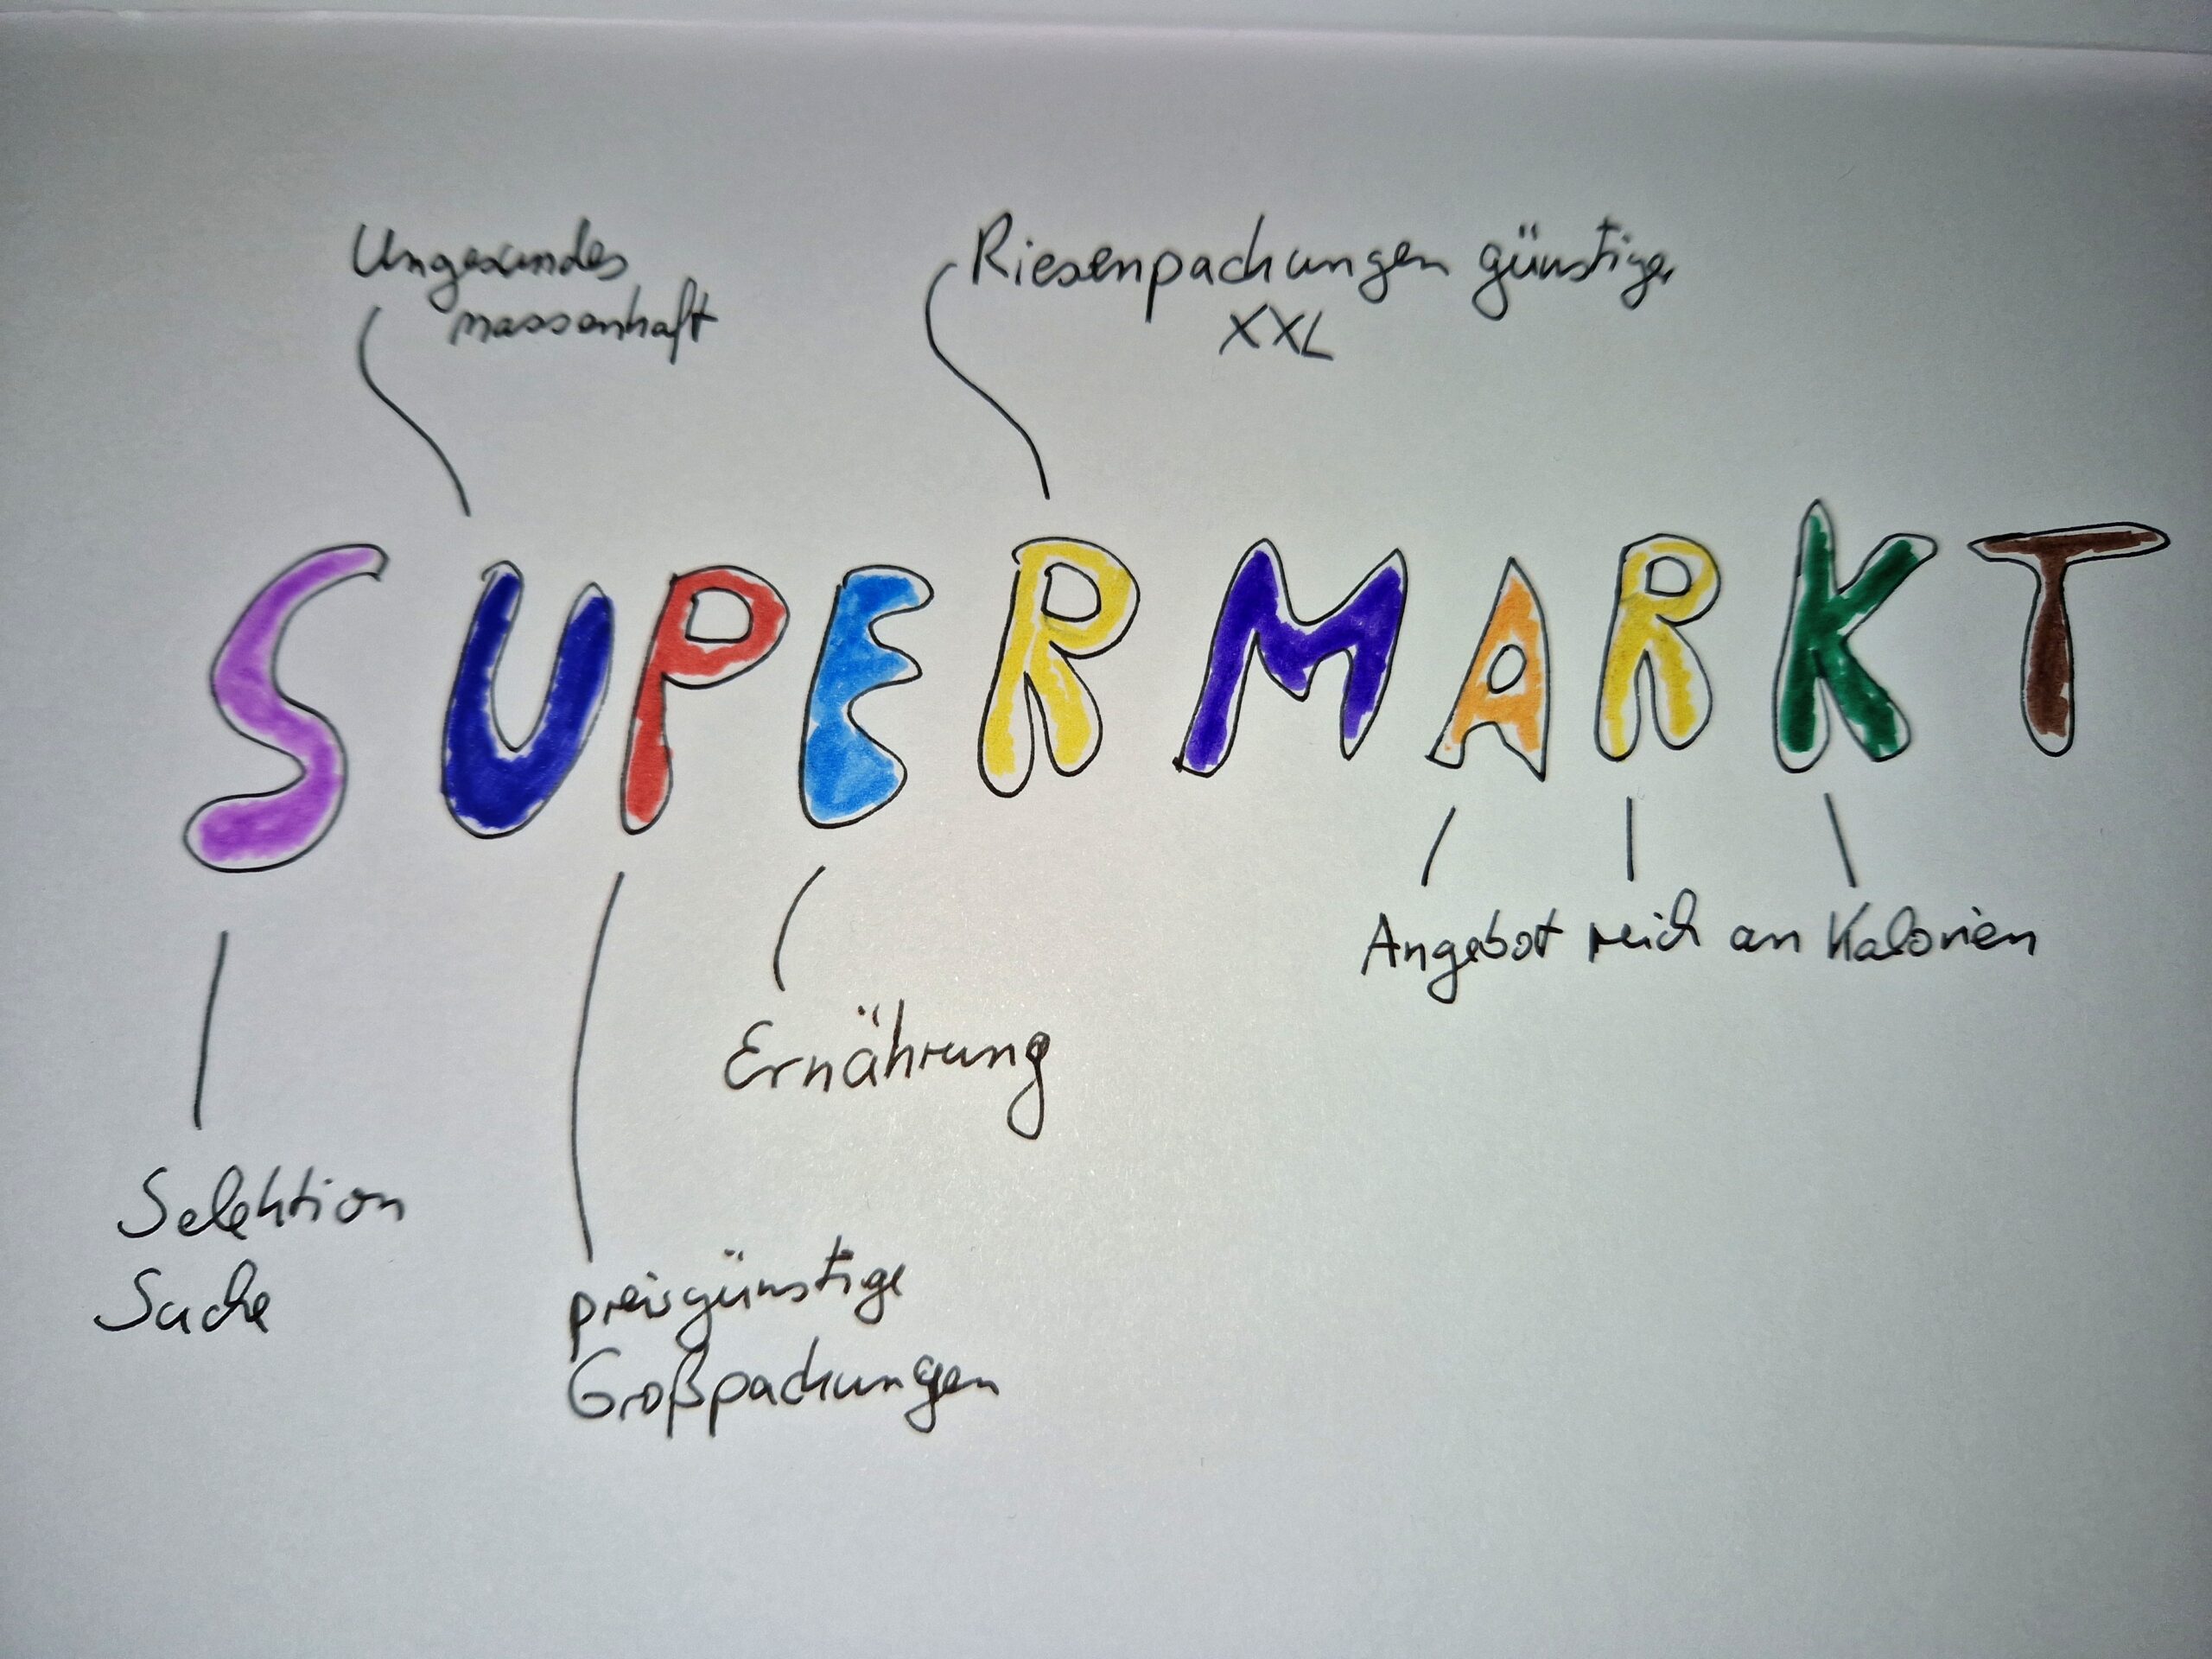 Ungesundes
massenhaft
Riesenpackungen günstiger
XXL
SUPERMARKT
Angebot reich an Kalorien
Ernährung
Selektion
Suche
preisgünstige
Großpackungen